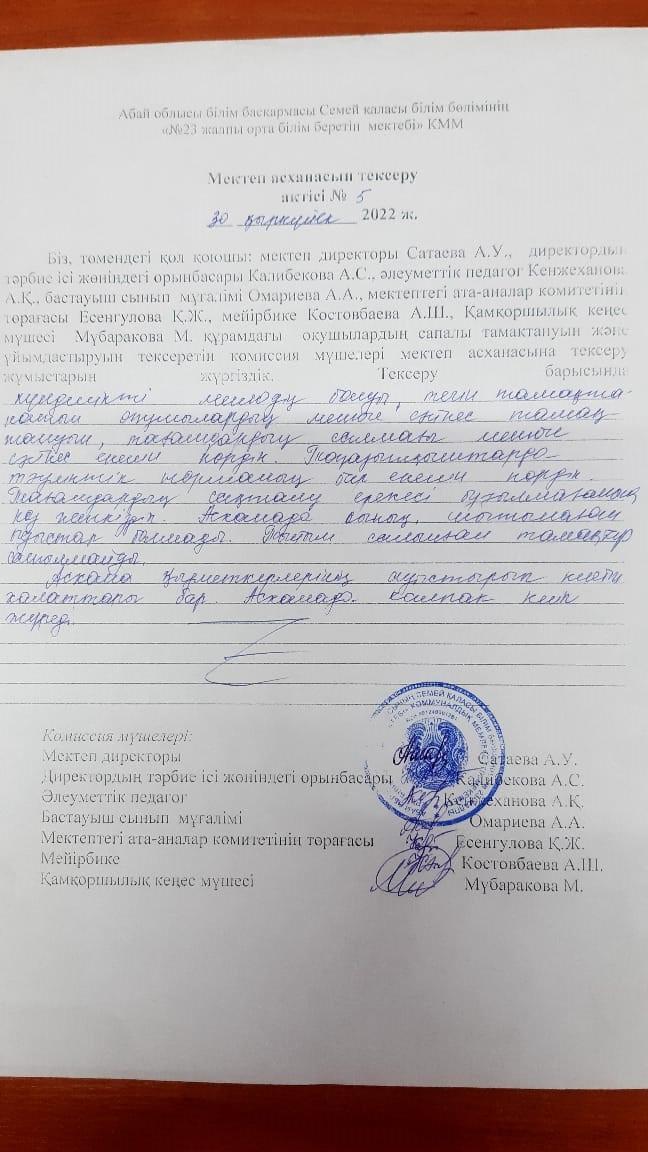 Абай облысы білім басқармасы Семей қаласы білім бөлімінің
«№23 жалпы орта білім беретін мектебі» КММ
Мектеп асханасын тексеру
актісі № 5
30 қыркүйек 2022 ж.
Біз, төмендегі қол қоюшы: мектеп директоры Сатаева А.У., директордың
тәрбие ісі жөніндегі орынбасары Калибекова А.С., әлеуметтік педагог Кенжеханова
А.Қ., бастауыш сынып мұғалімі Омариева А.А., мектептегі ата-аналар комитетінің
төрағасы Есенгулова Қ.Ж., мейірбике Костовбаева А.Ш., Қамқоршылық кеңес
мүшесі Мүбаракова М. құрамдағы оқушылардың сапалы тамақтануын және
ұйымдастыруын тексеретін комиссия мүшелері мектеп асханасына тексеру
жұмыстарын жүргіздік. Тексеру барысында
күнделікті менюдің болуы, тегін тамақта-
натын оқушылардың менюге сәйкес тамақ-
тануын, тағамдардың салмағы менюге
сәйкес екенін көрдік. Тоңазытқыштарда
тәуліктік норманың бар екенін көрдік.
Тағамдардың сақталу ережесі бұзылмағанына
көз жеткіздік. Асханада сынық,
ыдыстар болмады. Тыйым салынған тамақтар
сатылмайды.
Асхана қызметкерлерінің ауыстырып киетін
халаттары бар. Асханада калпак киіп
жүреді.
Комиссия мүшелері:
Мектеп директоры Сатаева А.У.
Директордың тәрбие ісі жөніндегі орынбасары Калибекова А.С.
Әлеуметтік педагог Кенжеханова А.Қ.
Бастауыш сынып мұғалімі Омариева А.А.
Мектептегі ата-аналар комитетінің төрағасы Есенгулова Қ.Ж.
Мейірбике Костовбаева А.Ш.
Қамқоршылық кеңес мүшесі Мүбаракова М.